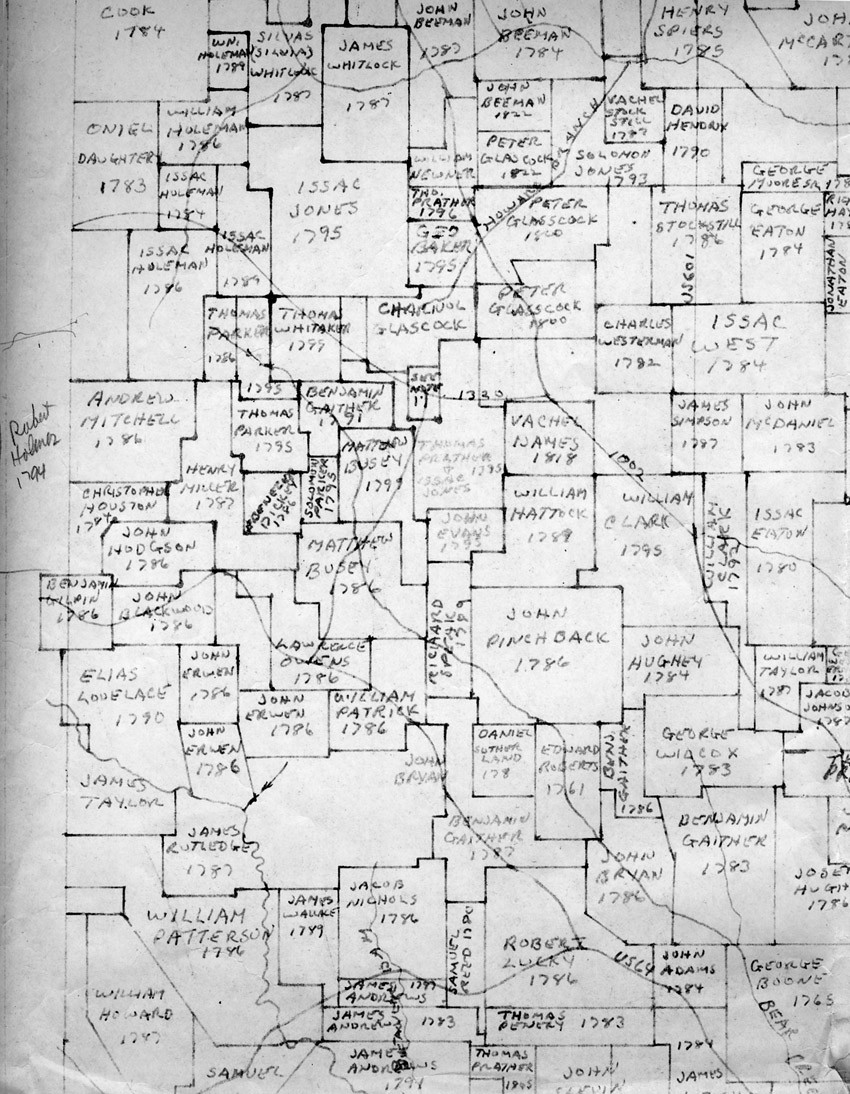 COOK
1784
WN.
HOLEMAN
1789
SILVAS
(SILVIA)
WHITLOCK
1787
JAMES
WHITLOCK
1787
JOHN
BEEMAN
1787
JOHN
BEEMAN
1784
HENRY
SPIERS
1785
ONIEL
DAUGHTER
1783
WILLIAM
HOLEMAN
1786
ISSAC
HOLEMAN
1784
ISSAC
JONES
1795
WILLIAM
NEWNER
THO.
PRATHER
1796
GEO
BAKER
1795
JOHN
BEEMAN
1822
PETER
GLASCOCK
1822
HOWARD BRANCH
VACHEL
STOCK
STILL
1787
SOLOMON
JONES
1793
DAVID
HENDRIX
1790
PETER
GLASSCOCK
1800
THOMAS
STOCKSTILL
1786
US601
GEORGE
MOORE SR
GEORGE
EATON
1784
JONATHAN
EATON
ISSAC
HOLEMAN
1786
ISSAC
HOLEMAN
1789
THOMAS
PARKER
1786
THOMAS
WHITAKER
1799
CHARNOL
GLASCOCK
PETER
GLASSCOCK
1800
CHARLES
WESTERMAN
1782
ISSAC
WEST
1784
Robert
Holmes
1794
ANDREW
MITCHELL
1786
1795
THOMAS
PARKER
1795
BENJAMIN
GAITHER
1791
SEE
NOTE
1
1320
MATTHEW
BUSEY
1799
THOMAS
PRATHER
&
ISSAC
JONES
1785
VACHEL
NAMES
1818
1002
JAMES
SIMPSON
1787
JOHN
McDANIEL
1783
CHRISTOPHER
HOUSTON
HENRY
MILLER
1787
EBENEEZER
DICKEY
1786
SOLOMON
PARKER
1795
JOHN
HODGSON
1786
MATTHEW
BUSEY
1786
JOHN
EVANS
1793
WILLIAM
HATTOCK
1789
WILLIAM
CLARK
1795
WILLIAM
CLARK
1792
ISSAC
EATON
1780
BENJAMIN
GILPIN
1786
JOHN
BLACKWOOD
1786
RICHARD
SPEAK
1789
JOHN
PINCHBACK
1786
JOHN
HUGHEY
1784
WILLIAM
TAYLOR
1787
JACOB
JOHNSON
1787
ELIAS
LOVELACE
1790
JOHN
ERWEN
1786
LAWRENCE
OWENS
1786
JOHN
ERWEN
1786
WILLIAM
PATRICK
1786
JOHN
ERWEN
1786
JOHN
BRYAN
DANIEL
SUTHER
LAND
178
EDWARD
ROBERTS
1761
BENJ.
GAITHER
1786
GEORGE
WIACOX
1783
JAMES
TAYLOR
JAMES
RUTLEDGE
1787
BENJAMIN
GAITHER
1787
BENJAMIN
GAITHER
1783
JOHN
BRYAN
1786
WILLIAM
PATTERSON
1786
JAMES
WALLACE
1789
JACOB
NICHOLS
1786
SAMUEL
REED 1780
ROBERT
LUCKY
1786
US64
JOHN
ADAMS
1784
GEORGE
BOONE
1765
BEAR CREEK
WILLIAM
HOWARD
1787
JAMES 1787
ANDREWS
JAMES
ANDREWS 1783
THOMAS
PENERY 1783
1784
SAMUEL
JAMES
ANDREWS
1794
THOMAS
PRATHER
JOHN
JAMES